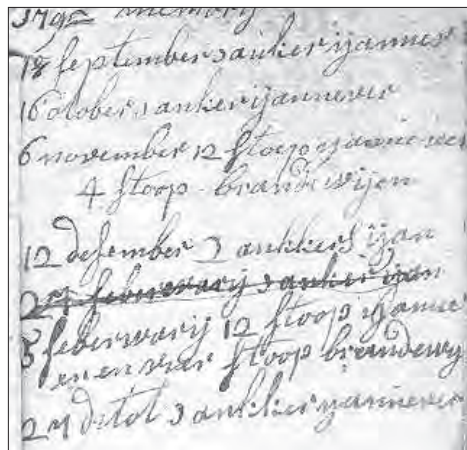 1792 memory
18 september 3 anker ijannever
16 october 3 anker ijannever
6 november 12 stoop ijannever
4 stoop brandewijen
12 desember 3 ankkers ijan
27 feberwarij 3 anker ijan
3 feberwarij 12 stoop ijanne
en en vier stoop brandewij
27 dito 3 ankker ijannever